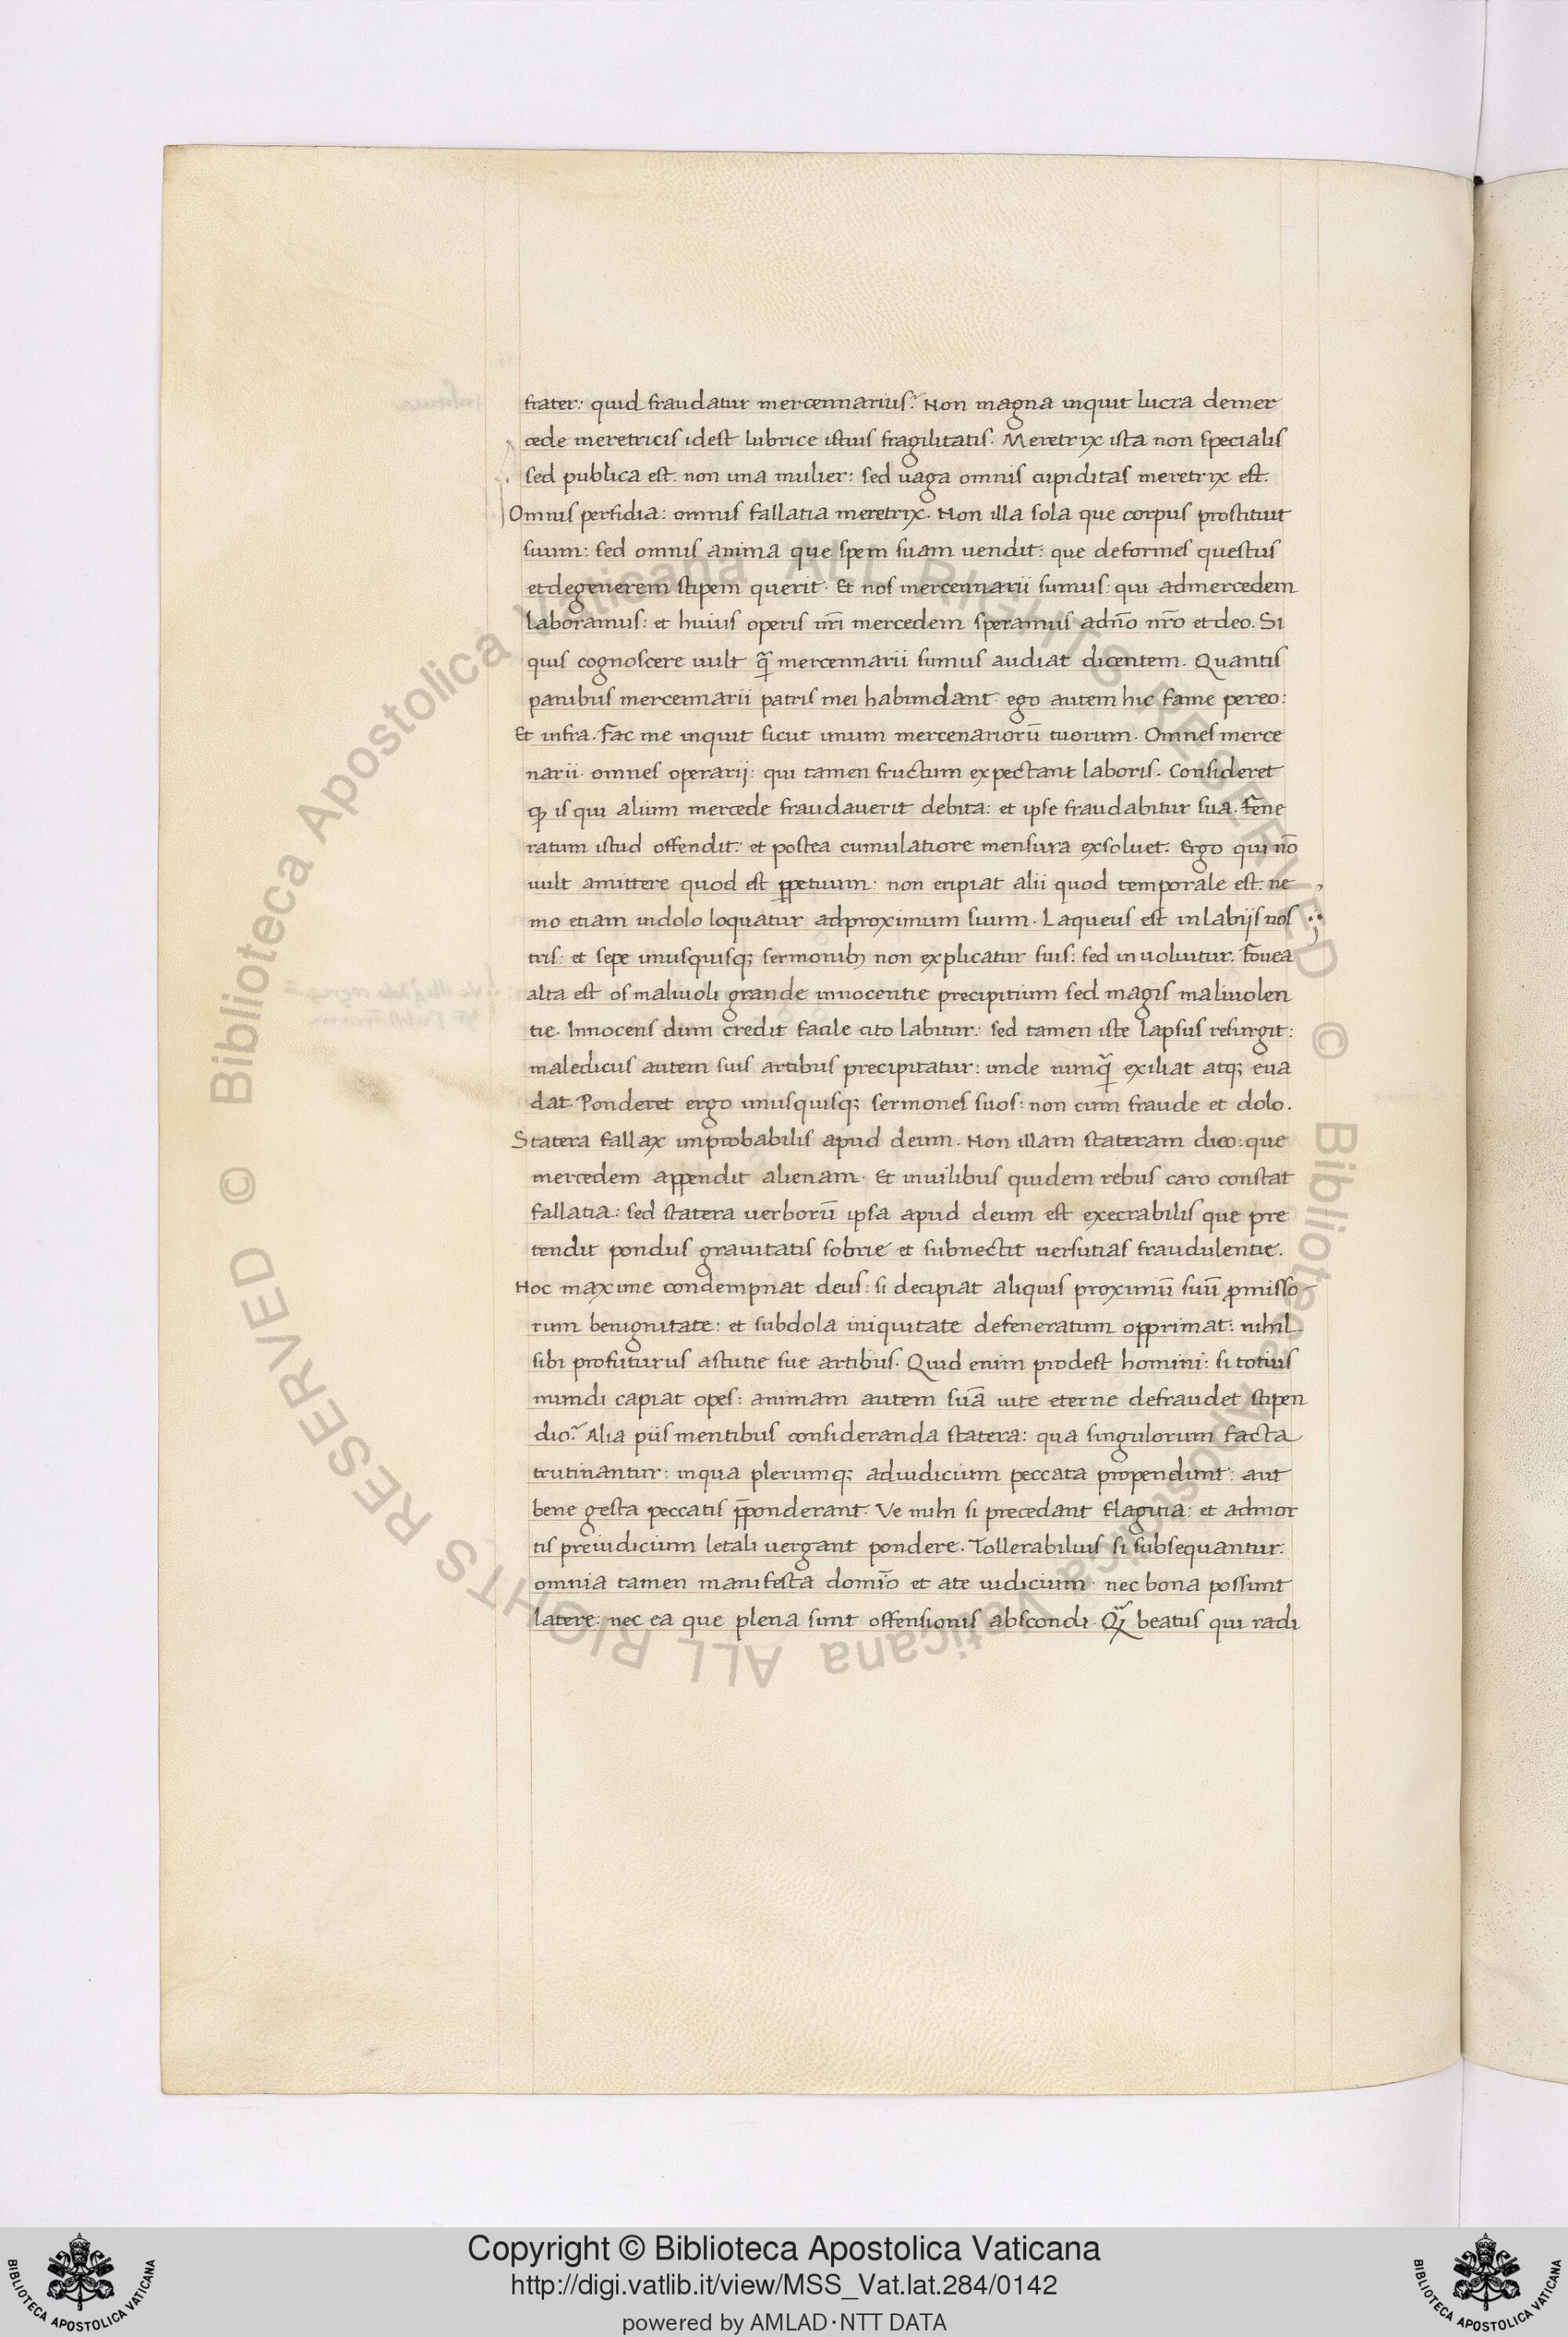 frater: quid fraudatur mercennarius? Non magna inquit lucra demer
cede meretricis idest lubrice istius fragilitatis. Meretrix ista non specialis
sed publica est. non una mulier: sed uaga omnis cupiditas meretrix est.
Omnis perfidia: omnis fallatia meretrix. Non illa sola que corpus prostituit
suum: sed omnis anima que spem suam uendit: que deformes questus
et degenerem stipem querit. Et nos mercennarii sumus: qui admercedem
laboramus: et huius operis nr̄i mercedem speramus adn̄o nr̄o et deo. Si
quis cognoscere uult q̃ mercennarii sumus audiat dicentem. Quantis
panibus mercennarii patris mei habundant: ego autem hic fame pereo:
Et infra. Fac me inquit sicut unum mercenariorū tuorum. Omnes merce
narii. omnes operarij: qui tamen fructum expectant laboris. Consideret
ꝙ is qui alium mercede fraudauerit debita: et ipse fraudabitur sua. Fene
ratum istud offendit: et postea cumulatiore mensura exsoluet. Ergo qui nō
uult amittere quod est ꝑpetuum: non eripiat alii quod temporale est. ne
mo etiam indolo loquatur adproximum suum. Laqueus est inlabijs nos
tris: et sepe unusquisq; sermonib; non explicatur suis: sed inuoluitur. Fouea
alta est os maliuoli grande innocentie precipitium sed magis maliuolen
tie. Innocens dum credit facile cito labitur: sed tamen iste lapsus resurgit:
maledicus autem suis artibus precipitatur: unde numq̃ exiliat atq; eua
dat. Ponderet ergo unusquisq; sermones suos: non cum fraude et dolo.
Statera fallax improbabilis apud deum. Non illam stateram dico: que
mercedem appendit alienam. Et inuilibus quidem rebus caro constat
fallatia: sed statera uerborū ipsa apud deum est execrabilis que pre
tendit pondus grauitatis sobrie et subnectit uersutias fraudulentie.
Hoc maxime condempnat deus: si decipiat aliquis proximū suū ꝓmisso
rum benignitate: et subdola iniquitate defeneratum opprimat: nihil
sibi profuturus astutie sue artibus. Quid enim prodest homini: si totius
mundi capiat opes: animam autem suā uite eterne defraudet stipen
dio? Alia piis mentibus consideranda statera: qua singulorum facta
trutinantur: inqua plerumq; adiudicium peccata propendunt: aut
bene gesta peccatis p̄ponderant. Ve mihi si precedant flagitia: et admor
tis preiudicium letali uergant pondere. Tollerabilius si subsequantur.
omnia tamen manifesta domīo et ate iudicium. nec bona possunt
latere: nec ea que plena sunt offensionis abscondi. beatus qui radi
Copyright © Biblioteca Apostolica Vaticana
http://digi.vatlib.it/view/MSS_Vat.lat.284/0142
powered by AMLAD·NTT DATA
© Biblioteca Apostolica Vaticana ALL RIGHTS RESERVED
© Biblioteca Apostolica Vaticana ALL RIGHTS RESERVED
BIBLIOTECA APOSTOLICA VATICANA
BIBLIOTECA APOSTOLICA VATICANA